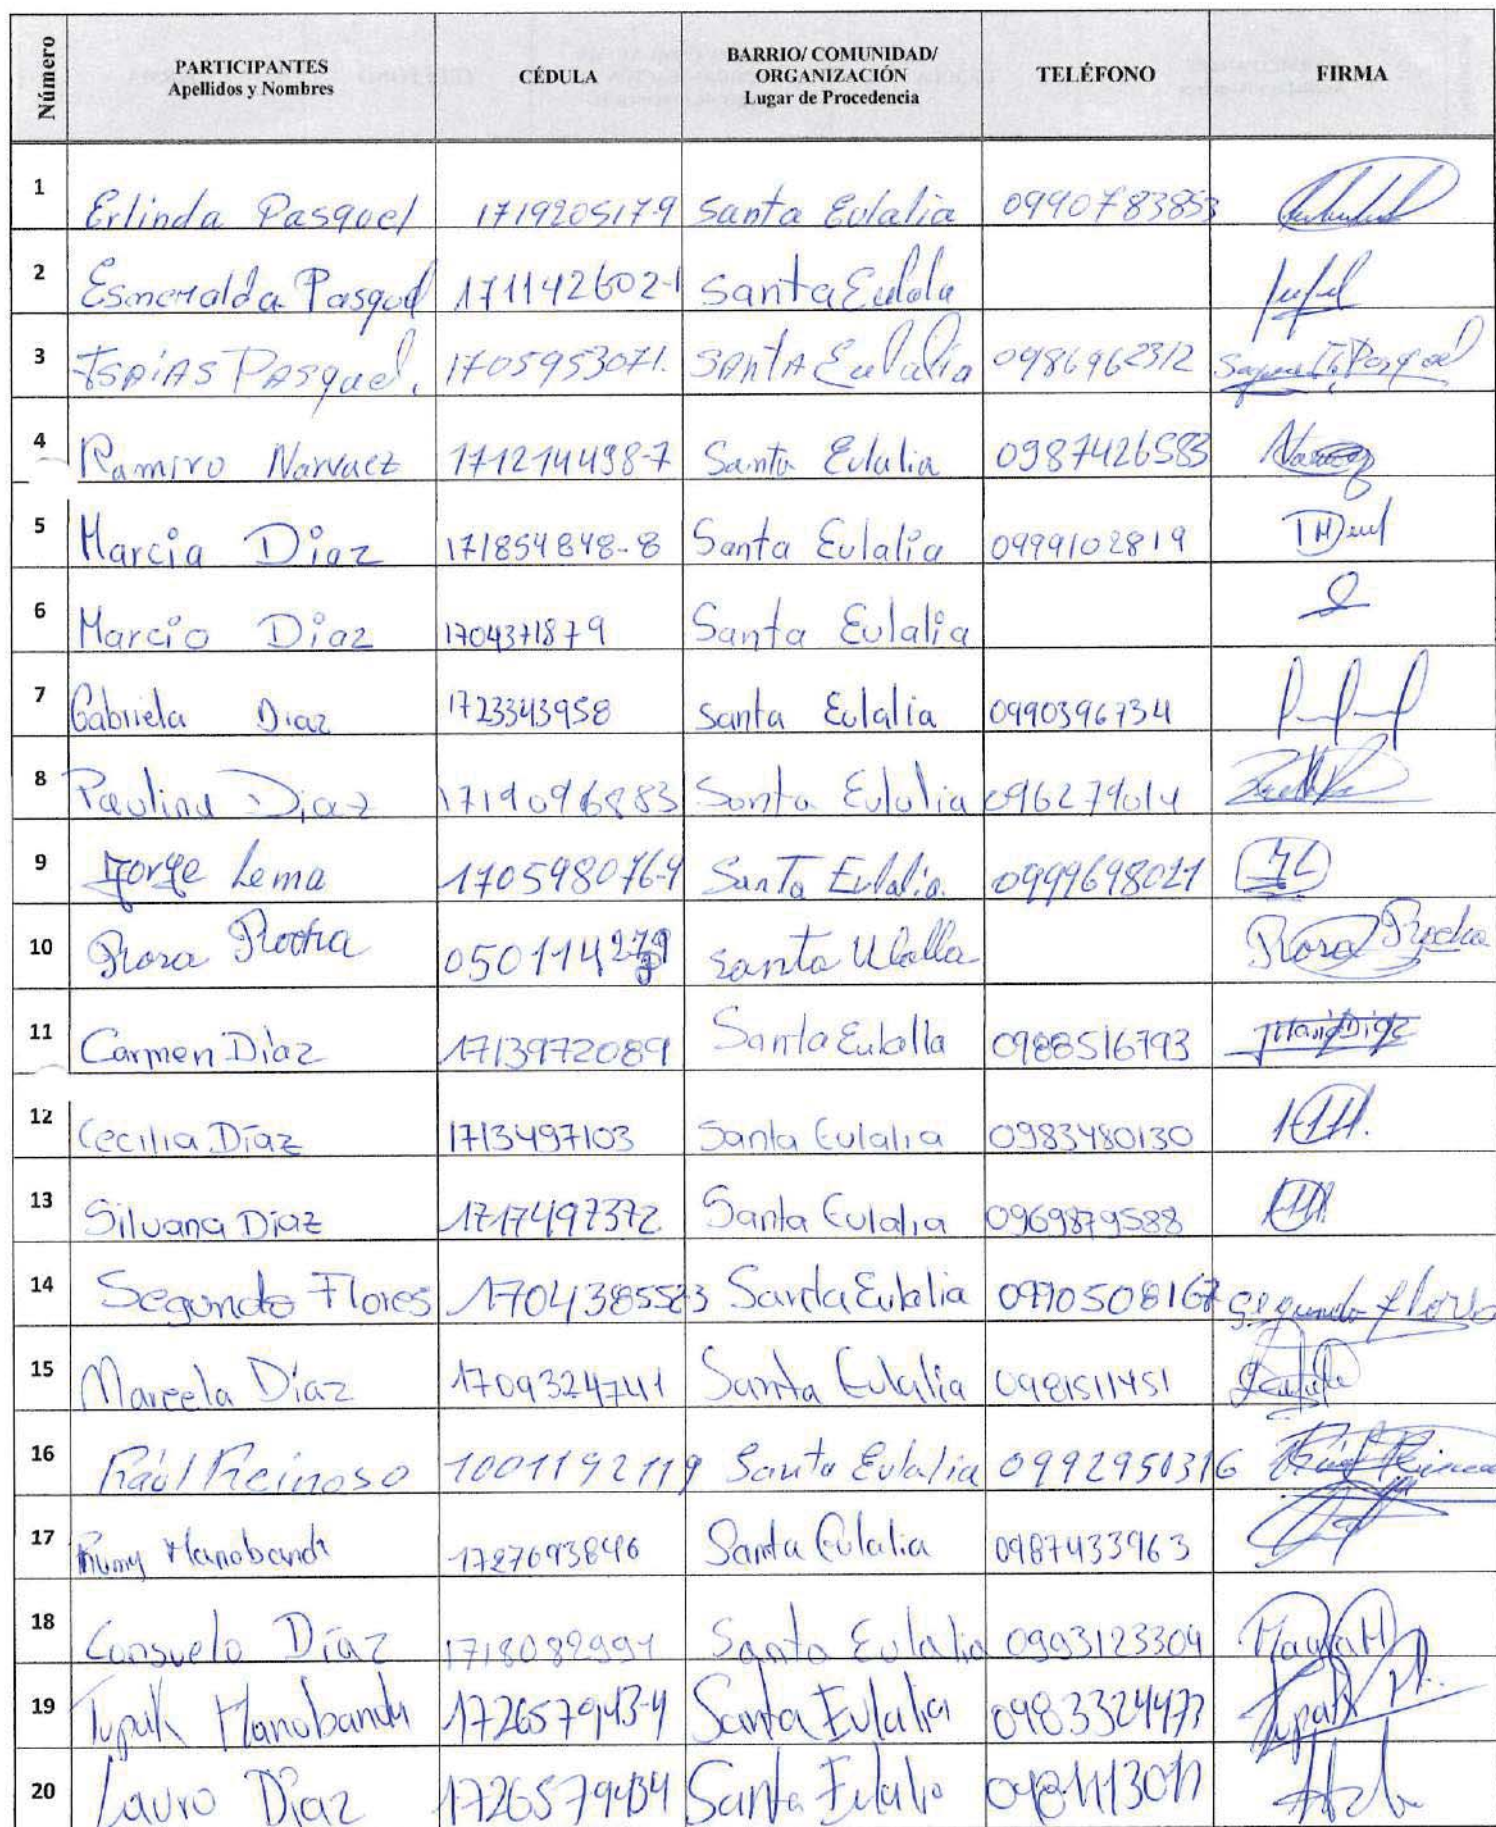 Número PARTICIPANTES Apellidos y Nombres CÉDULA BARRIO/ COMUNIDAD/ ORGANIZACIÓN Lugar de Procedencia TELÉFONO FIRMA
1 Erlinda Pasquel 171920517-9 Santa Eulalia 0990783853
2 Esmeralda Pasquel 171142602-1 Santa Eulola
3 Isaías Pasquel. 1705953071. Santa Eulalia 0986962312 Pasquel
4 Ramiro Narvaez 171214498-7 Santa Eulalia 0987426583
5 Marcia Diaz 171854848-8 Santa Eulalia 0999102819
6 Marcio Diaz 1704371879 Santa Eulalia
7 Gabriela Diaz 1723343958 santa Eulalia 0990396734
8 Paulina Diaz 1719096883 Santa Eulalia 096279014
9 Jorge Lema 170598076-4 Santa Eulalia. 0999698021 JL
10 Rosa Rocha 050114 santa Ulalla Rosa Rocha
11 Carmen Díaz 1713972089 Santa Eulalla 0988516793 Diaz
12 Cecilia Díaz 1713497103 Santa Eulalia 0983480130
13 Silvana Díaz 1717497372 Santa Eulalia 0969879588
14 Segundo Flores 1704385583 Santa Eulalia 0990508167 Segundo flores
15 Marcela Díaz 1709324741 Santa Eulalia 0981511451
16 Raúl Reinoso 1001192119 Santa Eulalia 0992950316
17 Rumy Manobanda 1727693846 Santa Eulalia 0987433963
18 Consuelo Díaz 1718082991 Santa Eulalia 0993123304
19 Tupak Manobanda 172657943-4 Santa Eulalia 0983324477 Tupak
20 Lauro Diaz 1726579434 Santa Eulalia